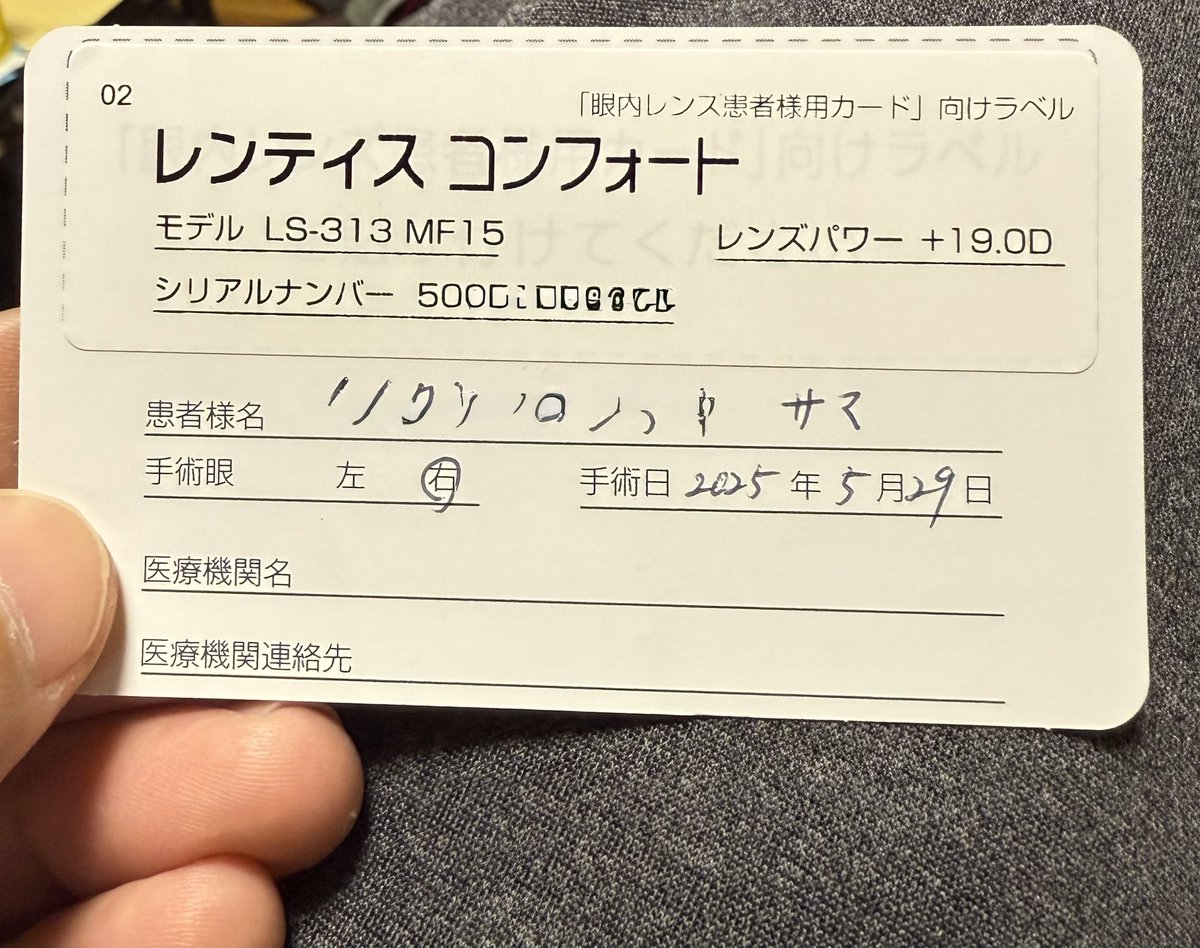 02
「眼内レンズ患者様用カード」向けラベル
レンティス コンフォート
モデル LS-313 MF15
レンズパワー +19.0D
シリアルナンバー
患者様名 サマ
手術眼 左 右
手術日 2025 年 5 月 29 日
医療機関名
医療機関連絡先